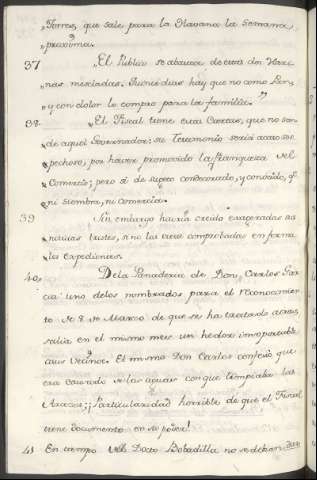 „Torres, que sale para la Havana la semana
„proxîma.
37 „El Publico se abastece de estas dos Hari-
„nas mescladas. Tienes dias hay que no como Pan,
„y con dolor le compro para la familia.”
38. „El Fiscal tiene estas Cartas, que no son
„de aquel Governador: su Testimonio seria acaso sos-
„pechoso, por haver promovido la franqueza del
„Comercio; pero sí de sugeto condecorado, y conocido, qᵉ
„ni siembra, ni comercia.
39 Sin embargo havria creido exâgeradas es-
„tas noticias tristes, si no las viese comprobadas en forma
„los expedientes.
40. De la Panaderia de Don Carlos Gar-
cia uno de los nombrados para el reconocimien-
to de 8. de Marzo de que se ha tratado arriba,
salia en el mismo mes un hedor insoportable
a sus Vecinos. El mismo Don Carlos confesó que
era causado de las aguas con que limpiaba las
Harinas; ¡Particularidad horrible de que el Fiscal
tiene documento en su poder!
41 En tiempo del Docto Bobadilla no se debian